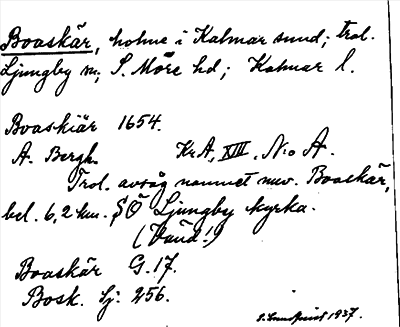 Boaskär, holme i Kalmar sund; trol.
Ljungby sn; S. Möre hd; Kalmar l.
Boaskiär 1654.
A. Bergh. KrA, XIII, N:o A.
Trol. avsåg namnet nuv. Boaskär,
bel. 6,2 km. SÖ Ljungby kyrka.
(Vänd!)
Boaskär G. 17.
Bosk. Sj. 256.
S. Lundqvist 1937.